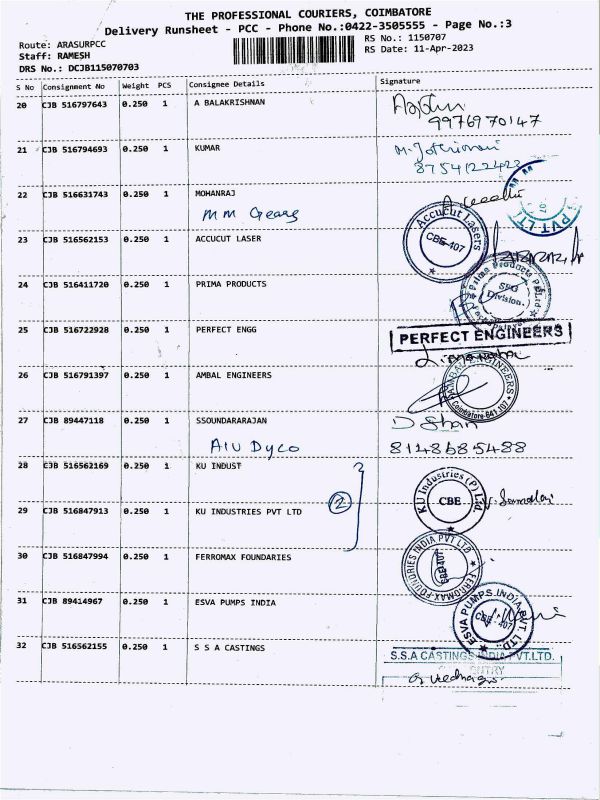 THE PROFESSIONAL COURIERS, COIMBATORE
Delivery Runsheet - PCC - Phone No.:0422-3505555 - Page No.:3
Route: ARASURPCC
RS No.: 1150707
Staff: RAMESH
RS Date: 11-Apr-2023
DRS No.: DCJB115070703
S No Consignment No Weight PCS Consignee Details Signature
20 CJB 516797643 0.250 1 A BALAKRISHNAN
9976970147
21 CJB 516794693 0.250 1 KUMAR
8754122423
22 CJB 516631743 0.250 1 MOHANRAJ
MM Gears
PVT LTD
23 CJB 516562153 0.250 1 ACCUCUT LASER
Accucut Lasers
CBE-407
24 CJB 516411720 0.250 1 PRIMA PRODUCTS
Prima Products Pvt Ltd
SPG
Division.
25 CJB 516722928 0.250 1 PERFECT ENGG
PERFECT ENGINEERS
26 CJB 516791397 0.250 1 AMBAL ENGINEERS
AMBAL ENGINEERS
Coimbatore-641 407
27 CJB 89447118 0.250 1 SSOUNDARARAJAN
AIU Dyco
8148685488
28 CJB 516562169 0.250 1 KU INDUST
KU Industries (P) Ltd.
CBE
29 CJB 516847913 0.250 1 KU INDUSTRIES PVT LTD
2
30 CJB 516847994 0.250 1 FERROMAX FOUNDARIES
FERROMAX-FOUNDRIES INDIA PVT LTD
31 CJB 89414967 0.250 1 ESVA PUMPS INDIA
ESVA PUMPS INDIA PVT LTD.
CBE - 407
32 CJB 516562155 0.250 1 S S A CASTINGS
S.S.A CASTINGS INDIA PVT.LTD.